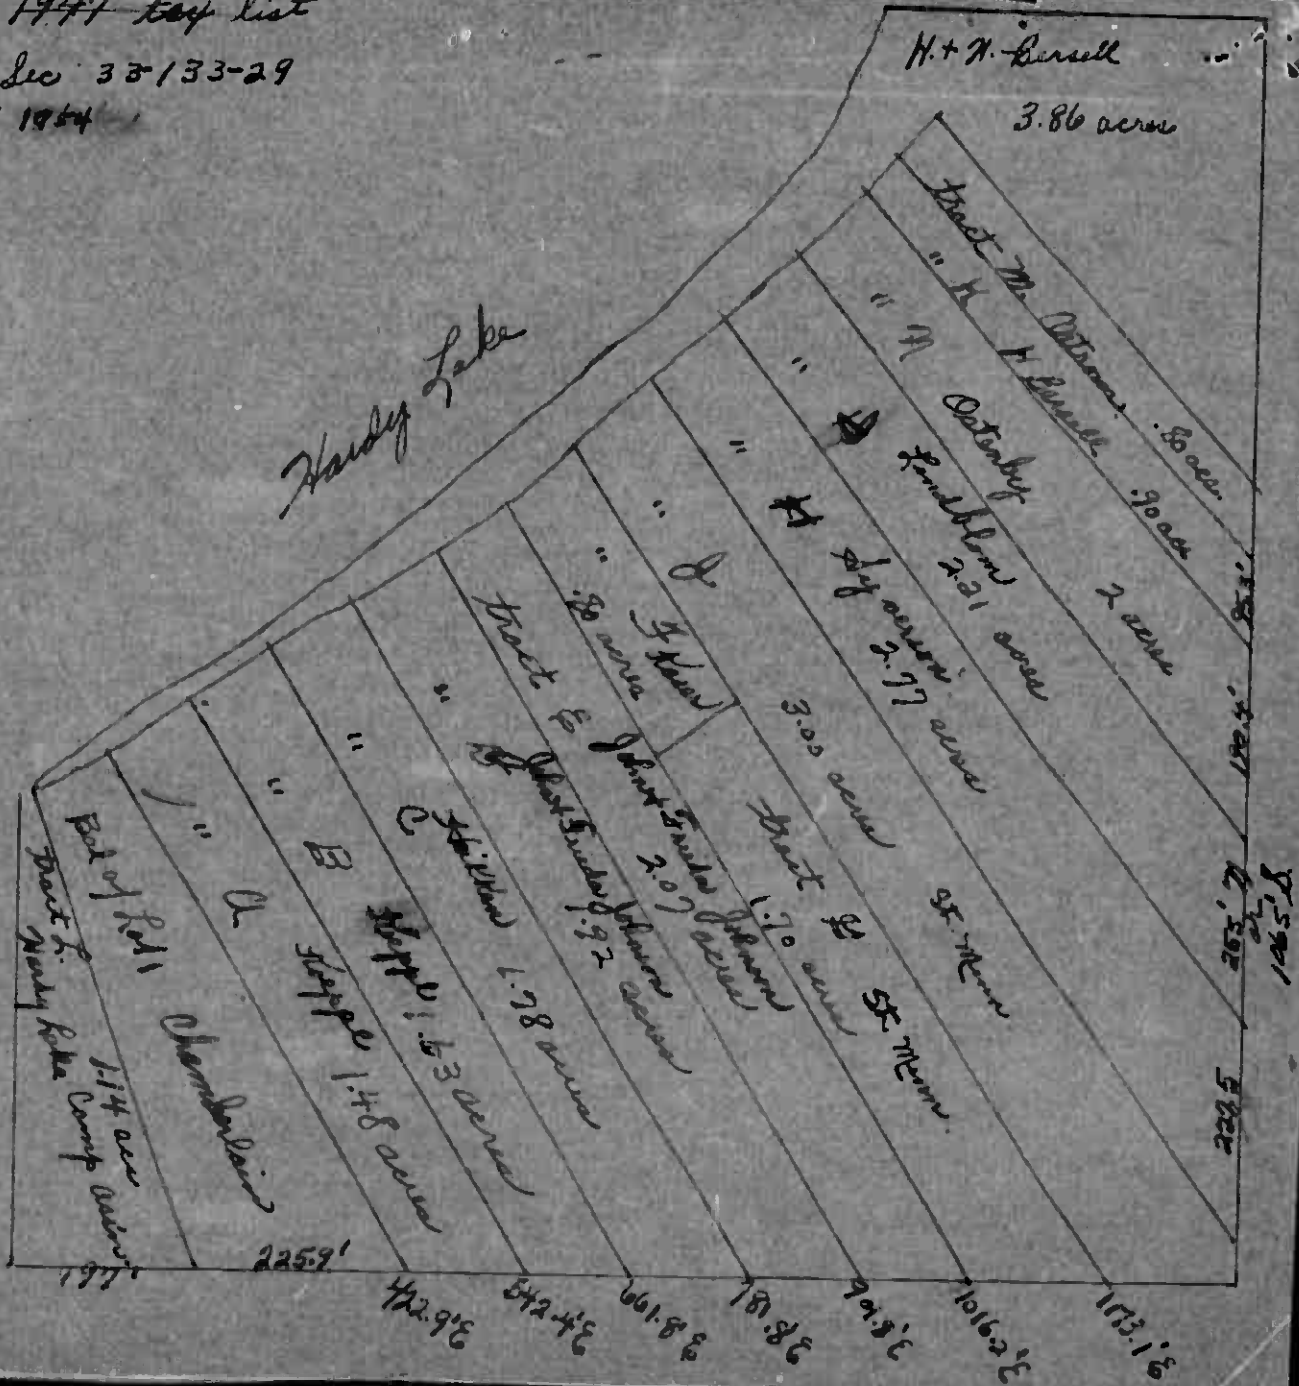 1947 tax list
Sec 33-133-29
1954
H. + N. Bersell
3.86 acres
Hardy Lake
tract M. Ostrom .80 acs.
" K H Bersell .90 acs
" N Ostenby 2 acres
" Lindblom 2.21 acres
" H 2.77 acres
" J. 3.00 acres St. Minn
" F
.80 acres
tract G St. Minn.
1.70 acres
tract E John + Freda Johnson
2.07 acres
" D John + Freda Johnson
1.92 acres
" C Heikken 1.78 acres
" B Hoppe 1.53 acres
" A Hoppe 1.48 acres
Bal of Lot 1 Chamberlain
tract L. 1.14 acs
Hardy Lake Camp assin.
197'
225.9'
422.9'E
542.4'E
661.8'E
781.8'E
901.8'E
1016.2'E
1173.1'E
222.5
265' N
or
1065' S
190.4'
95.3'